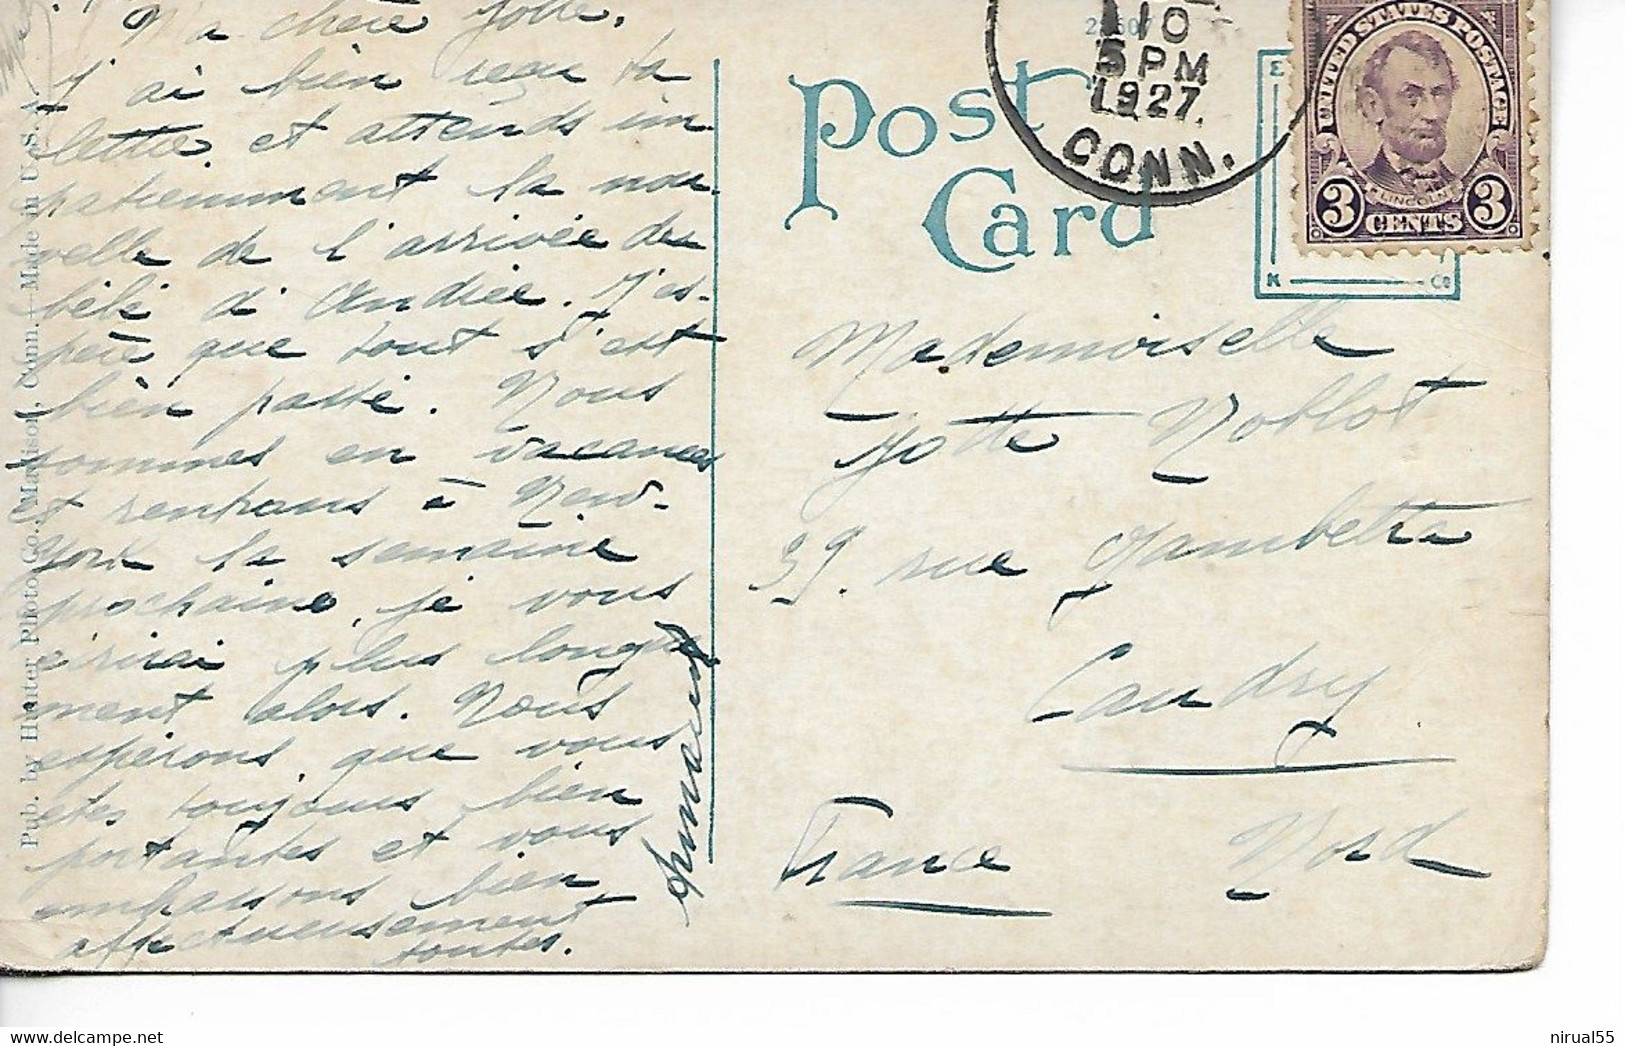 Ma chère Jotte,
J'ai bien reçu ta
lettre, et attends im-
patiemment la nou-
velle de l'arrivée du
bébé d'Andrée. J'es-
père que tout s'est
bien passé. Nous
sommes en vacances
et rentrons à New-
York la semaine
prochaine, je vous
écrirai plus longue
ment alors. Nous
espérons que vous
êtes toujours bien
portantes et vous
embrassons bien
affectueusement
toutes.
Pub. by Hunter Photo Co., Madison, Conn.—Made in U. S. A.
Post
Card
10
5 PM
1927.
CONN.
UNITED STATES POSTAGE
LINCOLN
3 CENTS 3
E
K Co
Mademoiselle
Jotte Noblot
39. rue Gambetta
Caudry
Nord
France
nirual55